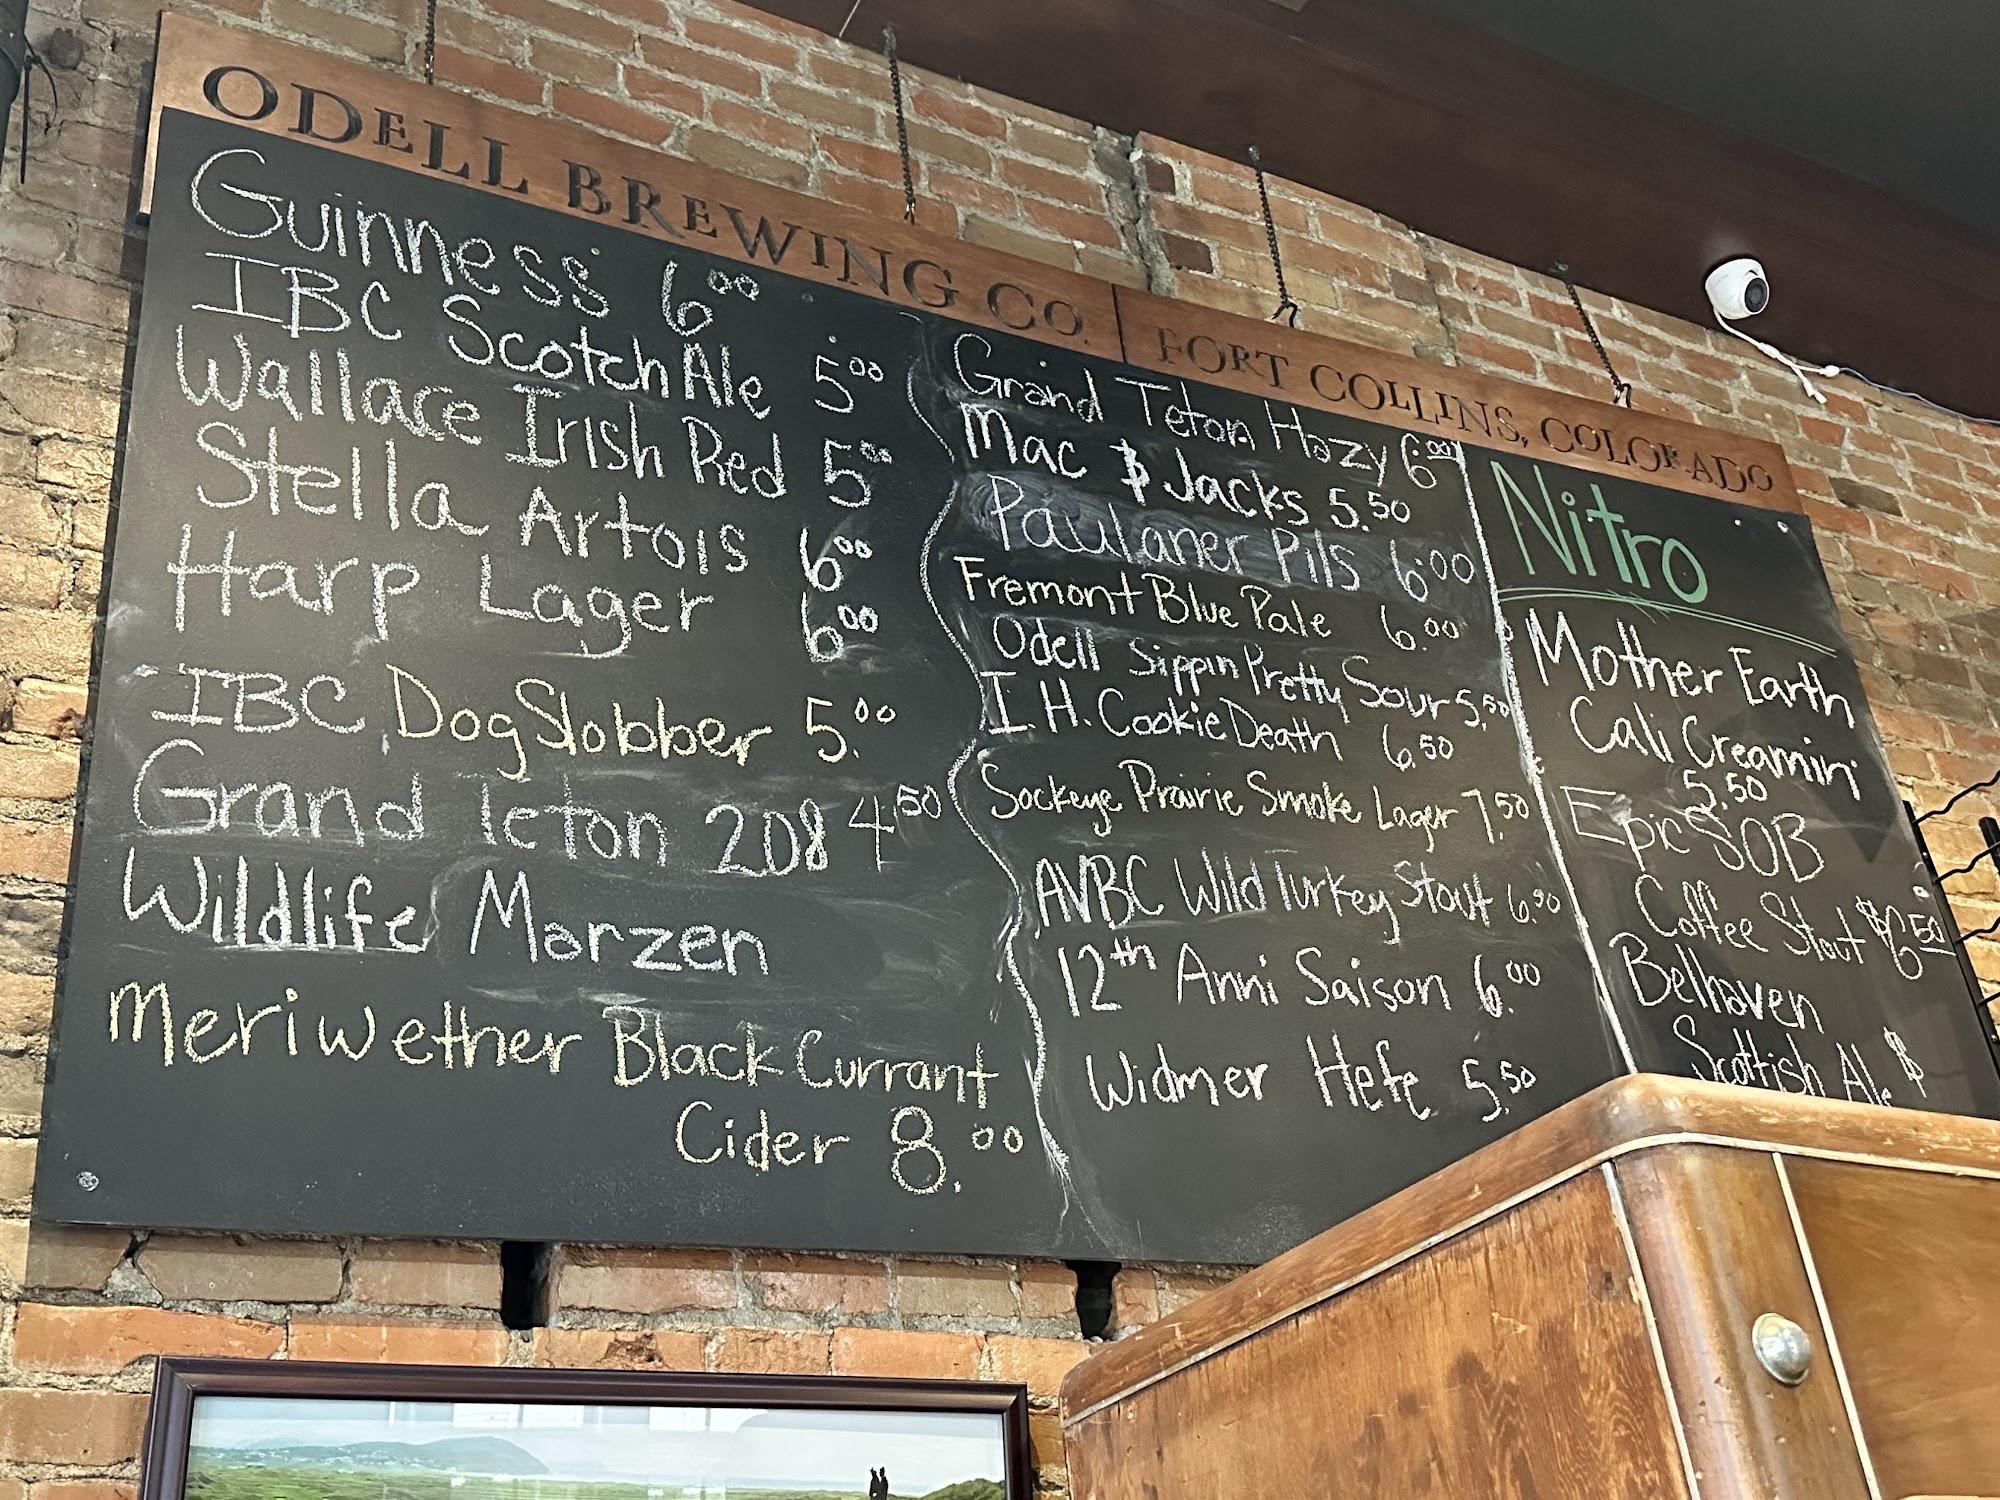 ODELL BREWING CO. | FORT COLLINS, COLORADO
Guinness 6.00
IBC Scotch Ale 5.00
Wallace Irish Red 5.00
Stella Artois 6.00
Harp Lager 6.00
IBC Dog Slobber 5.00
Grand Teton 208 4.50
Wildlife Marzen
Meriwether Black Currant
Cider 8.00
Grand Teton Hazy 6.00
Mac $ Jacks 5.50
Paulaner Pils 6.00
Fremont Blue Pale 6.00
Odell Sippin Pretty Sour 5.50
I.H. Cookie Death 6.50
Sockeye Prairie Smoke Lager 7.50
AVBC Wild Turkey Stout 6.50
12th Anni Saison 6.00
Widmer Hefe 5.50
Nitro
Mother Earth
Cali Creamin'
5.50
Epic SOB
Coffee Stout $6.50
Belhaven
Scottish Ale $